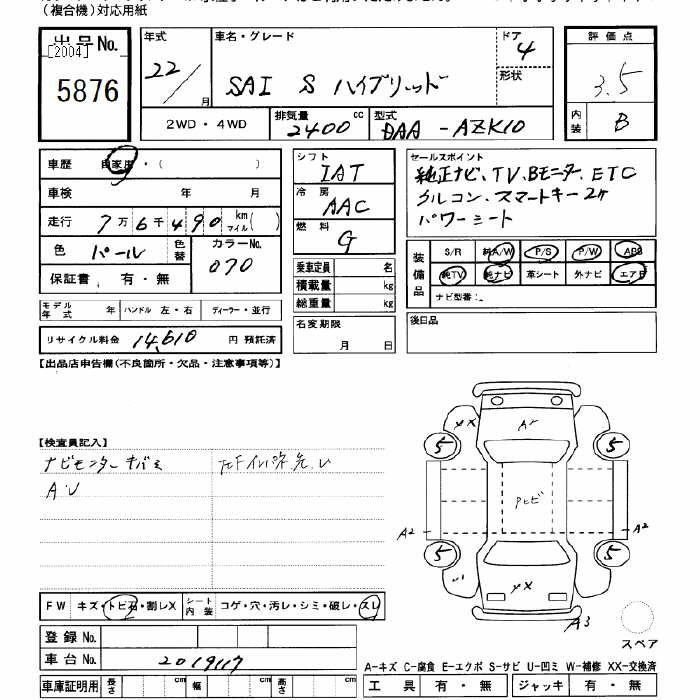 （複合機）対応用紙
出品No.
[2004]
5876
年式 22/ 月
車名・グレード
SAI S ハイブリッド
ドア 4
形状
評価点
3.5
内装 B
2WD・4WD
排気量 2400 cc
型式 DAA-AZK10
車歴 自家用・（ ）
車検 年 月
走行 7万6千490 km マイル( )
色 パール 色替
カラーNo. 070
保証書 有・無
モデル年式 年 ハンドル 左・右 ディーラー・並行
リサイクル料金 14,610 円 預託済
シフト IAT
冷房 AAC
燃料 G
乗車定員 名
積載量 kg
総重量 kg
名変期限
月 日
セールスポイント
純正ナビ、TV、Bモニター、ETC
クルコン、スマートキー2ケ
パワーシート
装備品
S/R 純A/W P/S P/W ABS
純TV 純ナビ 革シート 外ナビ エアB
ナビ型番：
後日品
【出品店申告欄（不良箇所・欠品・注意事項等）】
【検査員記入】
ナビモニター キバミ
A・U
XX A2
5 5
Pヒビ
A2 A2
5 5
XX
A3
スペア
FW キズ・トビ石・割レX シート内装 コゲ・穴・汚レ・シミ・破レ・スレ
登録No.
車台No. 2019117
車庫証明用 長さ cm 幅 cm 高さ cm
A-キズ C-腐食 E-エクボ S-サビ U-凹ミ W-補修 XX-交換済
工具 有・無 ジャッキ 有・無